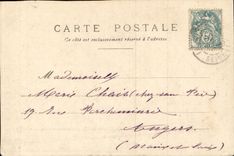 CARTE POSTALE
Ce côté est exclusivement réservé à l'adresse
Mademoiselle
Marie Chais chez son Père
19 Rue Parcheminerie
Angers
(Maine et Loire)